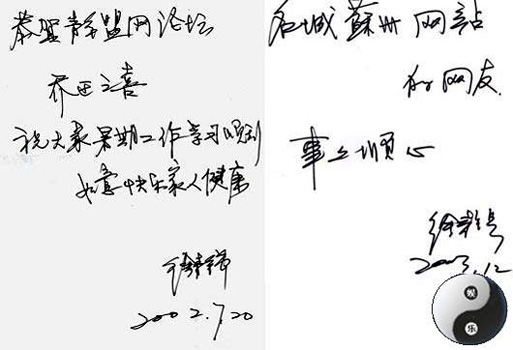 恭贺青年盟网论坛
乔迁之喜
祝大家暑期工作学习顺利
如意快乐家人健康
2002.7.20
名城蘇州网站
的网友
事业顺心
2003.12
娱
乐